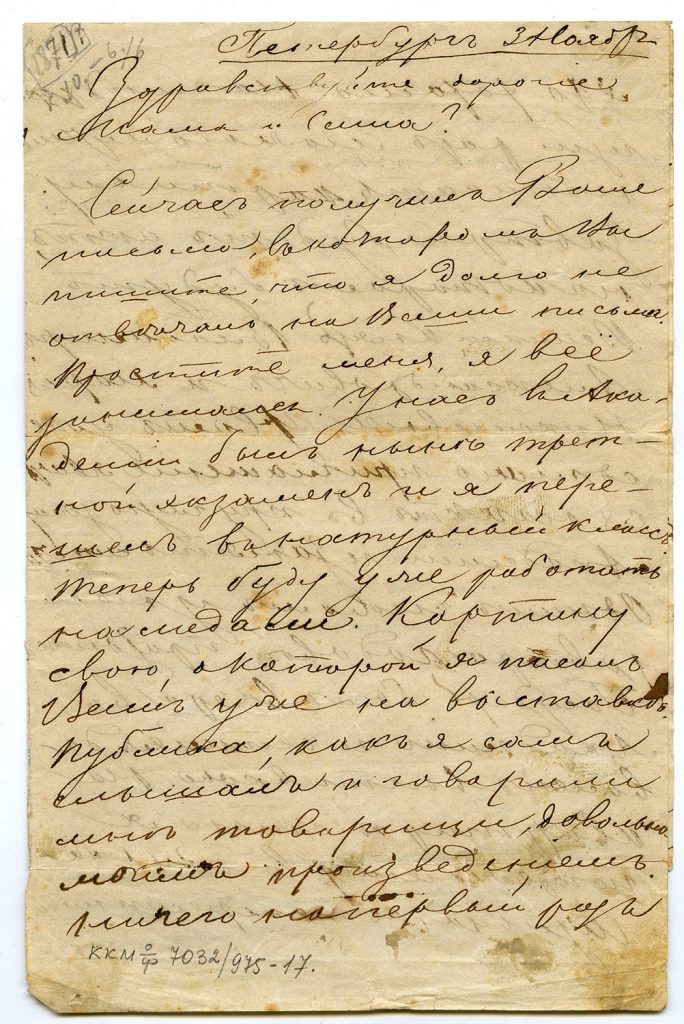 Петербургъ 3 Ноября
Здравствуйте дорогие
Мама и Саша!
Сейчасъ получилъ Ваше
письмо, въ которомъ Вы
пишите, что я долго не
отвѣчалъ на Ваши письма.
Простите меня, я всё
занимался. У насъ в Ака-
деміи былъ нынѣ трет-
ной экзаменъ и я пере-
шелъ в натурный классъ
теперь буду уже работать
на медали. Картину
свою, о которой я писалъ
Вамъ уже на выставкѣ.
Публика, какъ я самъ
слышалъ и говорили
мнѣ товарищи, довольна
моимъ произведеніемъ.
Ничего на первый разъ
ККМ оф 7032/975-17.